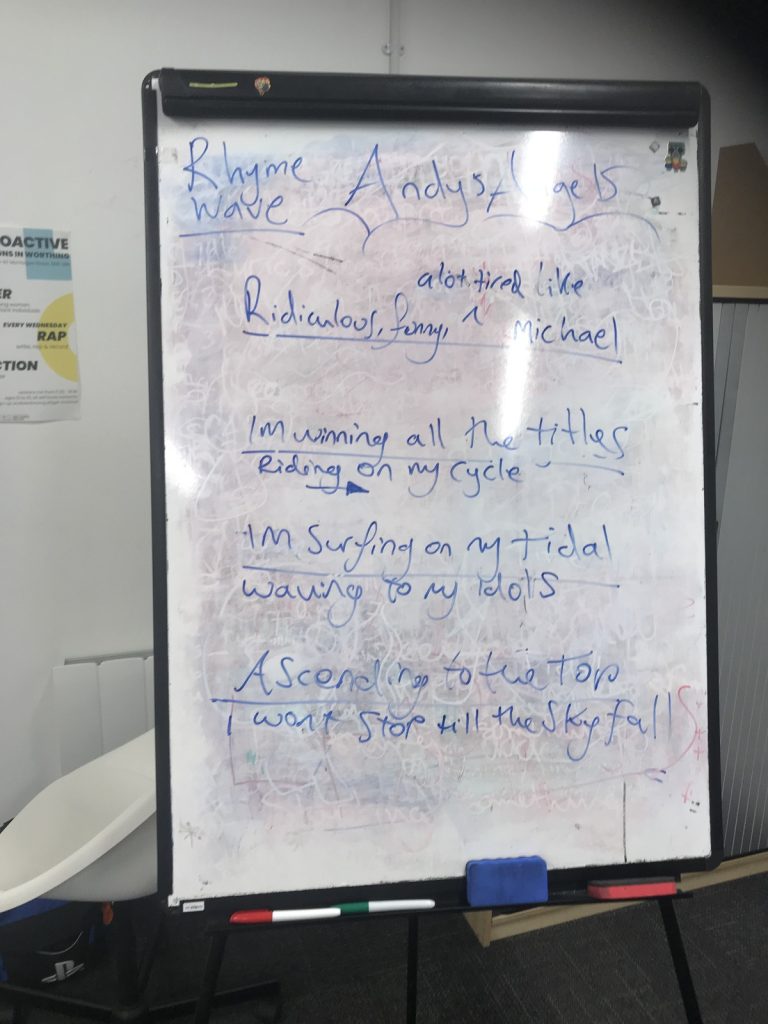 Rhyme
wave
Andys Angels
alot tired like
Ridiculous, funny, ^ Michael
Im winning all the titles
Riding on my cycle
Im Surfing on my tidal
waving to my idols
Ascending to the Top
I wont stop till the sky falls
OACTIVE
NS IN WORTHING
ER
EVERY WEDNESDAY
RAP
CTION